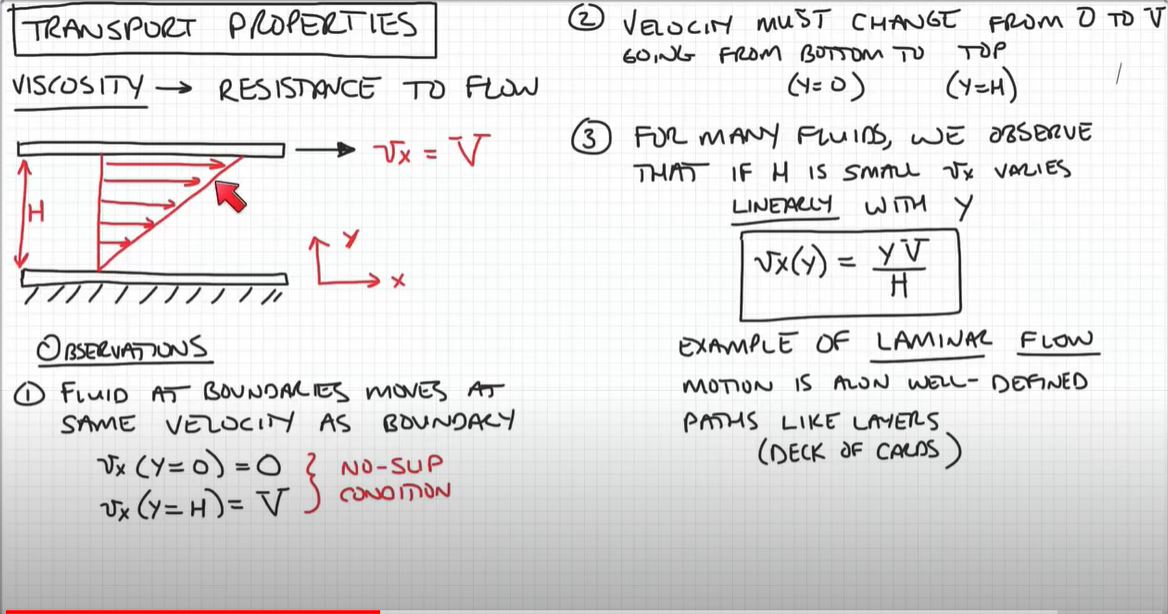 TRANSPORT PROPERTIES
VISCOSITY → RESISTANCE TO FLOW
vx = V
H
y
x
OBSERVATIONS
① FLUID AT BOUNDARIES MOVES AT
SAME VELOCITY AS BOUNDARY
vx (y=0) = 0
vx (y=H) = V
NO-SLIP
CONDITION
② VELOCITY MUST CHANGE FROM 0 TO V
GOING FROM BOTTOM TO TOP
(y=0) (y=H)
③ FOR MANY FLUIDS, WE OBSERVE
THAT IF H IS SMALL vx VARIES
LINEARLY WITH y
vx(y) = yV/H
EXAMPLE OF LAMINAR FLOW
MOTION IS ALON WELL-DEFINED
PATHS LIKE LAYERS
(DECK OF CARDS)